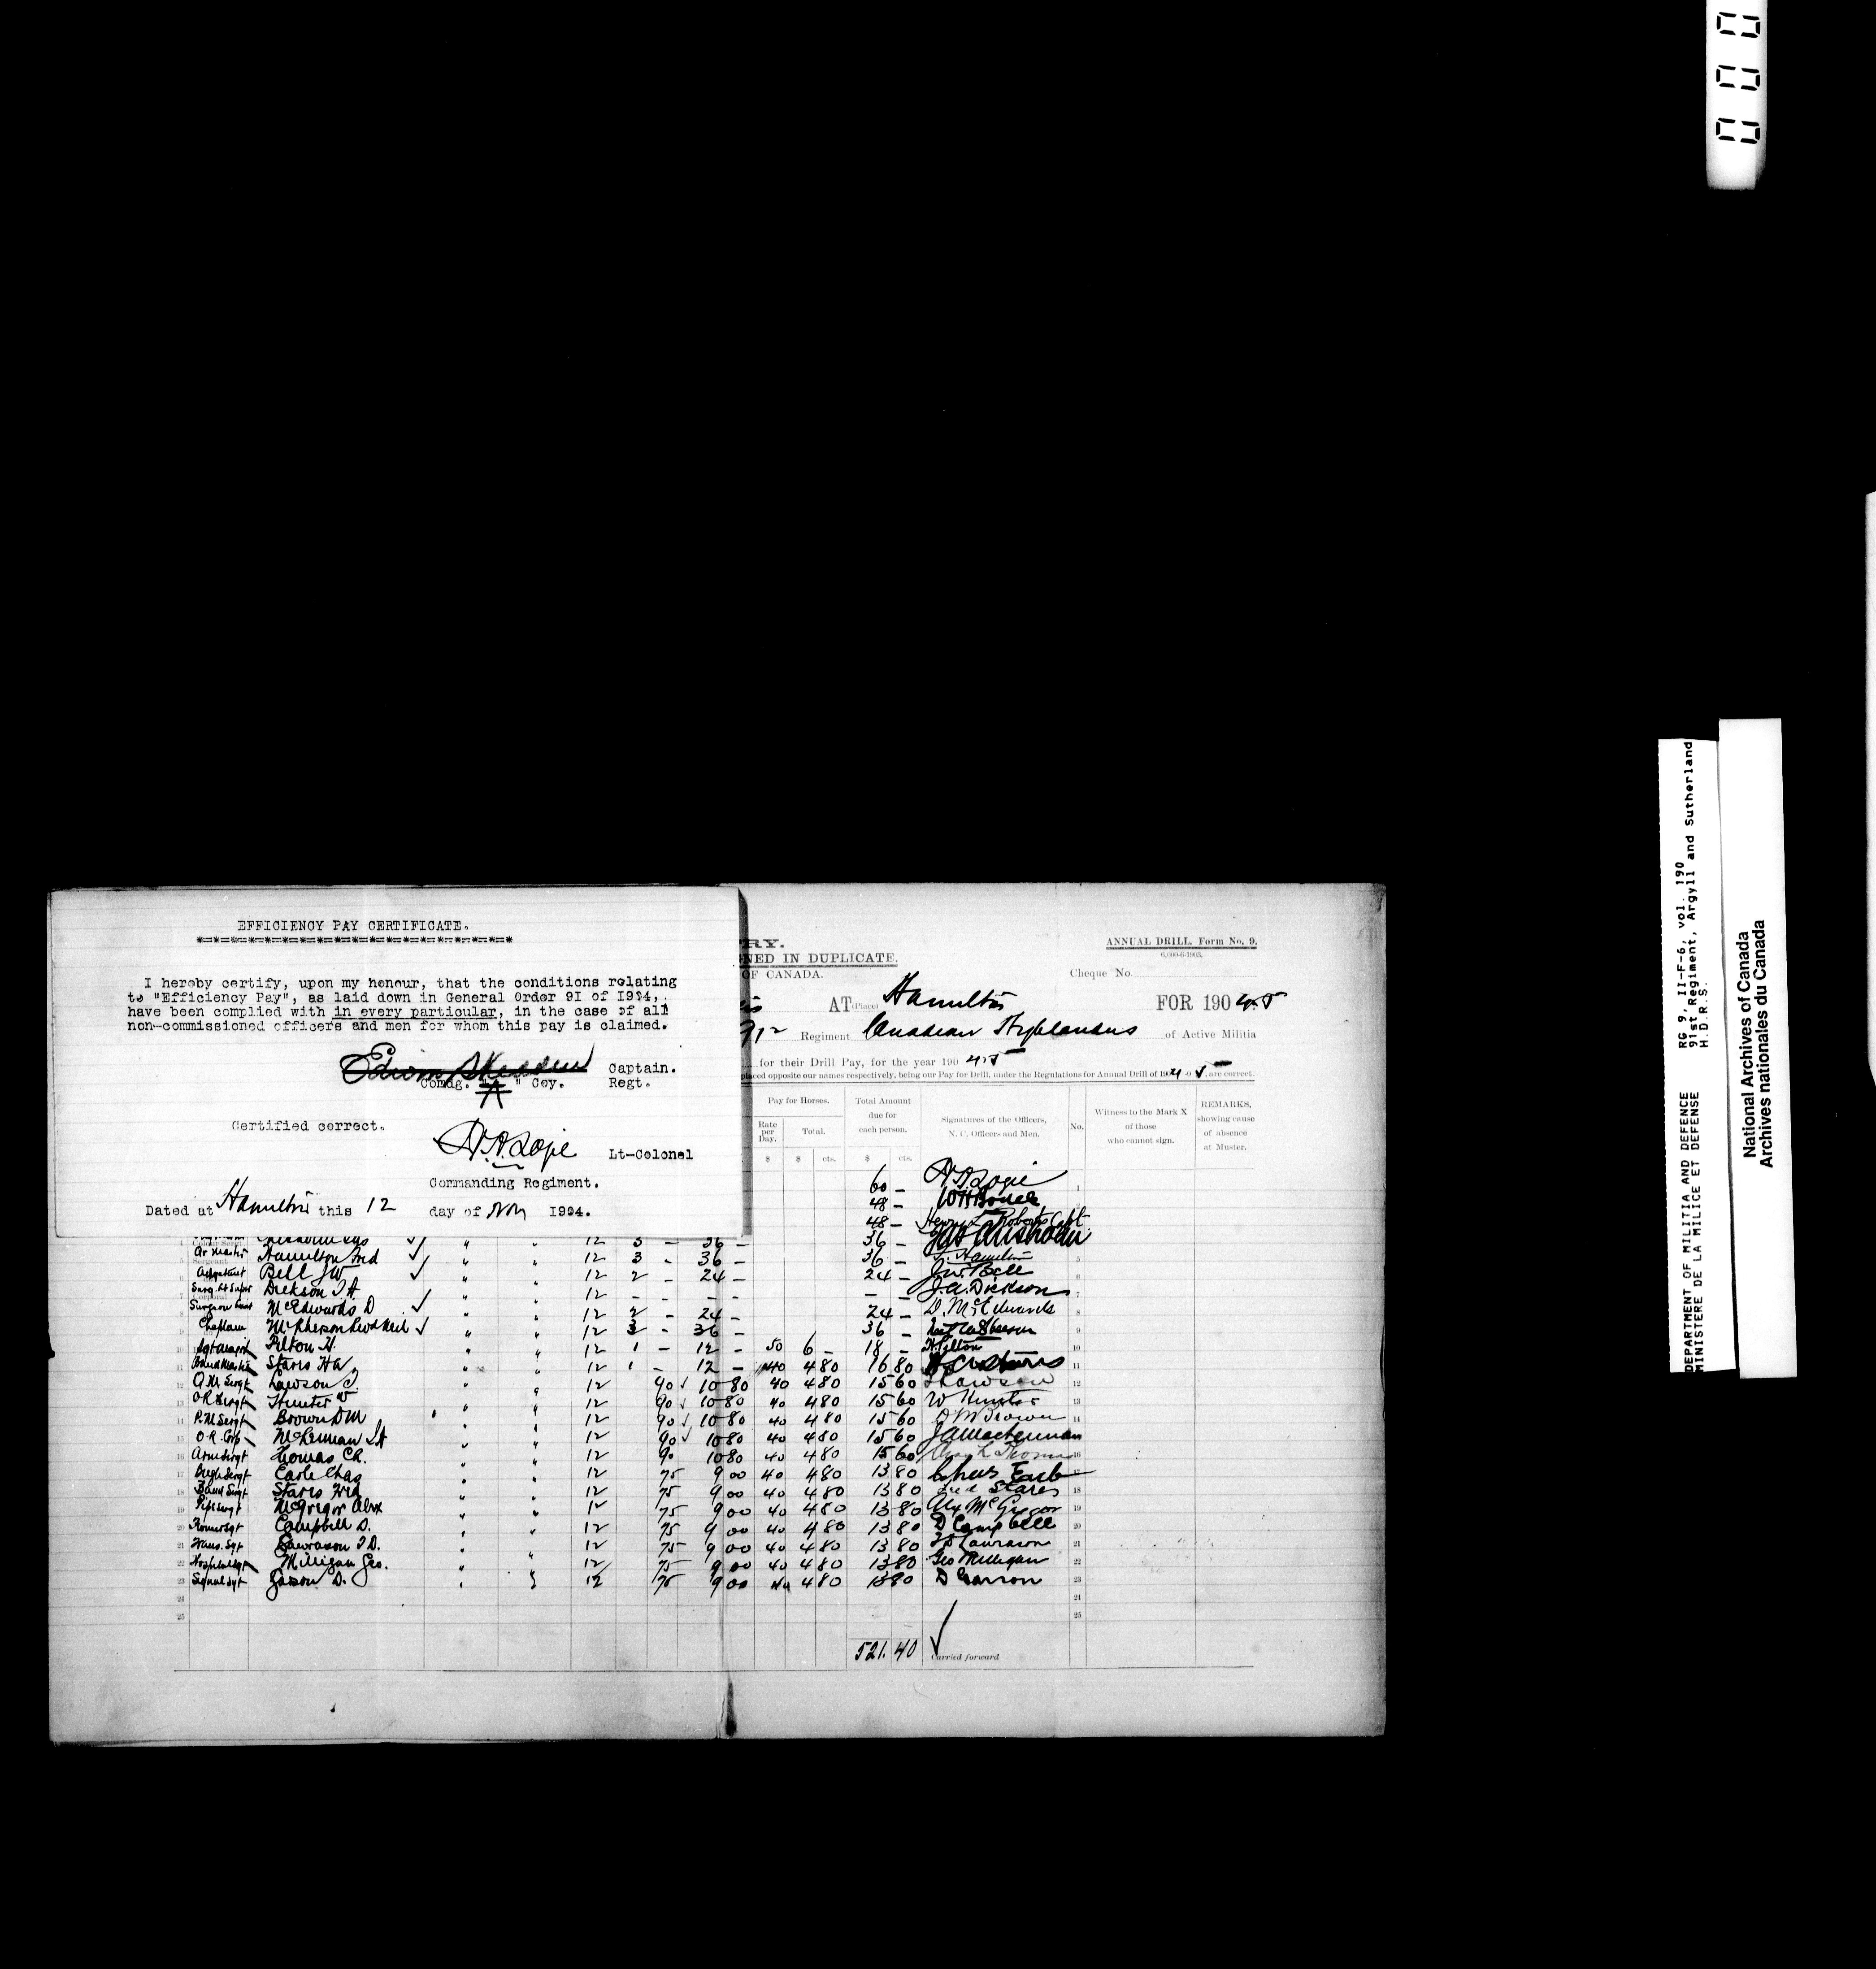 000
EFFICIENCY PAY CERTIFICATE.
*=*=*=*=*=*=*=*=*=*=*=*=*=*=*=*=*=*=*
I hereby certify, upon my honour, that the conditions relating
to "Efficiency Pay", as laid down in General Order 91 of 1904,
have been complied with in every particular, in the case of all
non-commissioned officers and men for whom this pay is claimed.
Captain.
Comdg. "A" Coy. Regt.
Certified correct.
Lt-Colonel
Commanding Regiment.
Dated at Hamilton this 12 day of Nov 1904.
RY.
NED IN DUPLICATE.
OF CANADA.
ANNUAL DRILL. Form No. 9.
6,000-6-1903.
Cheque No.
AT (Place) Hamilton FOR 190 4-5
91st Regiment Canadian Highlanders of Active Militia
for their Drill Pay, for the year 190 4-5
placed opposite our names respectively, being our Pay for Drill, under the Regulations for Annual Drill of 1904-05, are correct.
Pay for Horses. Total Amount due for each person. Signatures of the Officers, N. C. Officers and Men. No. Witness to the Mark X of those who cannot sign. REMARKS, showing cause of absence at Muster.
Rate per Day. Total.
$ $ cts. $ cts.
60 – 1
48 –
48 –
4 12 3 – 36 – 36 –
Hamilton Fred ✓ " " 12 3 – 36 – 36 – F. Hamilton 5
6 Adjutant Bell JW ✓ " " 12 2 – 24 – 24 – Jno. Bell 6
7 Dickson J A " " 12 – – – – – – J. A. Dickson 7
8 McEdwards D ✓ " " 12 2 – 24 – 24 – D. McEdwards 8
9 Chaplain McPherson Revd Neil ✓ " " 12 3 – 36 – 36 – 9
10 Sgt Major Pilton H. " " 12 1 – 12 – 50 6 – 18 – H Pilton 10
11 Band Master Stares H A " " 12 1 – 12 – 40 4 80 16 80 11
12 Q. M. Sergt Lawson J. " " 12 90 ✓ 10 80 40 4 80 15 60 J Lawson 12
13 O R Sergt Hunter W " " 12 90 ✓ 10 80 40 4 80 15 60 W Hunter 13
14 P. M Sergt Brown D M " " 12 90 ✓ 10 80 40 4 80 15 60 D M Brown 14
15 O. R. Corp McLennan J A " " 12 90 ✓ 10 80 40 4 80 15 60 J A MacLennan
16 Arm Sergt Thomas Ch. " " 12 90 10 80 40 4 80 15 60 16
17 Bugle Sergt Earle Chas " " 12 75 9 00 40 4 80 13 80 Chas Earle
18 Band Sergt Stares Fred " " 12 75 9 00 40 4 80 13 80 Fred Stares 18
19 Pipe Sergt McGregor Alex " " 12 75 9 00 40 4 80 13 80 Alex McGregor 19
20 Campbell D. " " 12 75 9 00 40 4 80 13 80 D Campbell 20
21 Trans. Sgt Lawrason T D. " " 12 75 9 00 40 4 80 13 80 T D Lawrason 21
22 Hospital Sgt Milligan Geo. " " 12 75 9 00 40 4 80 13 80 Geo Milligan 22
23 Signal Sgt D. " " 12 75 9 00 40 4 80 13 80 23
24 24
25 25
521. 40 Carried forward
DEPARTMENT OF MILITIA AND DEFENCE
MINISTERE DE LA MILICE ET DEFENSE
RG 9, II-F-6, vol. 190
91st Regiment, Argyll and Sutherland
H.D.R.S.
National Archives of Canada
Archives nationales du Canada